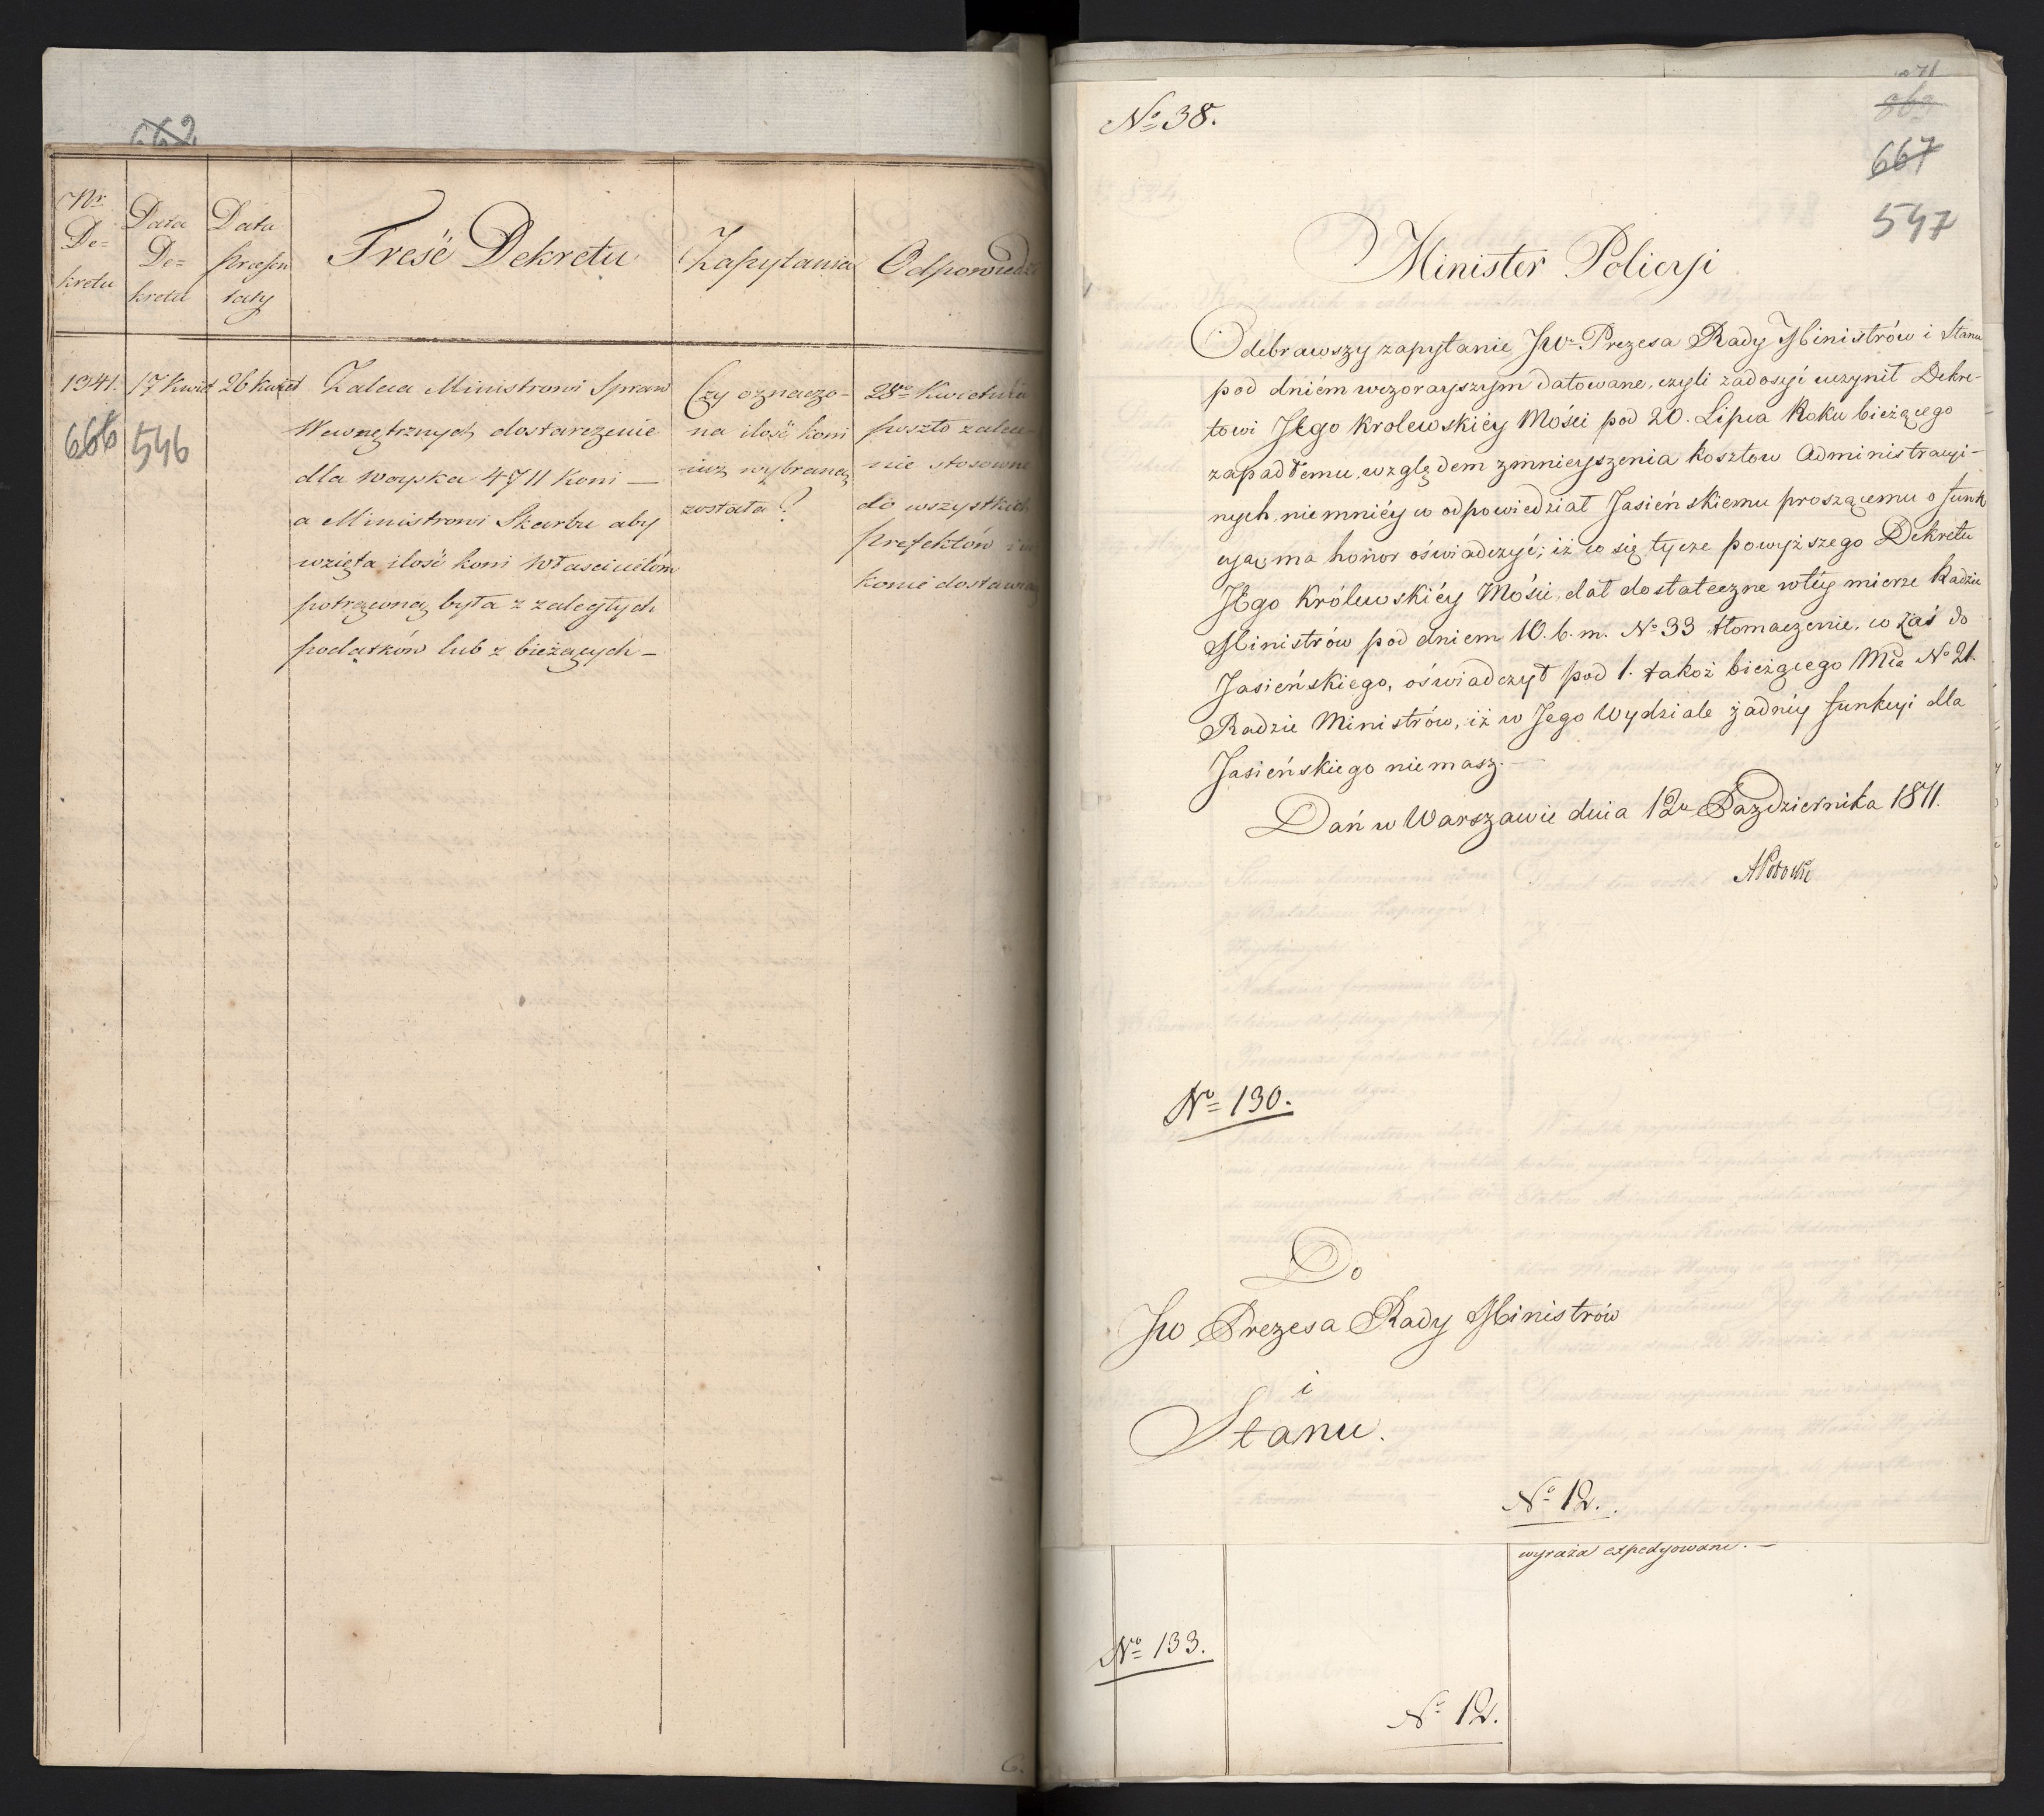 662
Nr De=kretu
Data De=kretu
Data Prezentaty
Treść Dekretu
Zapytania
Odpowiedzi
1941.
17 Kwiet
26 Kwiet
666
546
Zaleca Ministrowi Spraw
Wewnętrznych dostarczenie
dla woyska 4711 Koni —
a Ministrowi Skarbu aby
wzięta ilość koni Właścicielóm
potrąconą była z zaległych
podatków lub z bieżących —
Czy oznaczo-
na ilość koni
iuż wybraną
została?
28go Kwietnia
poszło zalece-
nie stosowne
do wszystkich
Prefektów i
konie dostawiaią
6.
No 38.
871
869
667
547
Minister Policyi
Odebrawszy zapytanie JW. Prezesa Rady Ministrów i Stanu
pod dniém wczorayszym datowane, czyli zadosyć uczynił Dekre-
towi JEgo Krolewskiéy Mości pod 20. Lipca Roku bieżącego
zapadłemu, względem zmnieyszenia Kosztow Administracyi-
nych, niemniéy w odpowiedział Jasieńskiemu proszącemu o funk
cyą, ma honor oświadczyć; iż co się tycze powyższego Dekretu
JEgo Królewskiéy Mości, dał dostateczne w téy mierze Radzie
Ministrów pod dniem 10. b. m. No 33 tłomaczenie, co zaś do
Jasieńskiego, oświadczył pod 1. takoż bieżącego Mca No 21.
Radzie Ministrów, iż w Jego Wydziale żadnéy funkcyi dla
Jasieńskiego niemasz. —
Dań w Warszawie dnia 12go Pazdziernika 1811.
APotocki
No 130.
Do
JW Prezesa Rady Ministrów
i
Stanu.
No 12.
wyraża expedyowane. —
No 133.
No 12.